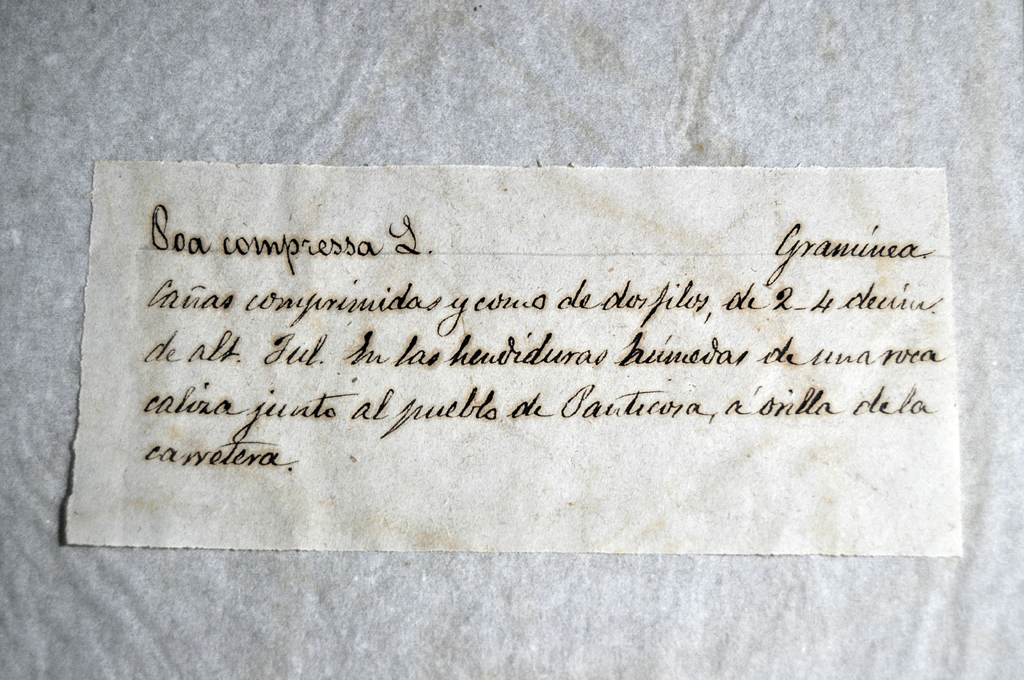 Poa compressa L. Gramínea.
Cañas comprimidas y como de dos filos, de 2-4 decím.
de alt. Jul. En las hendiduras húmedas de una roca
caliza junto al pueblo de Panticosa, á orilla de la
carretera.